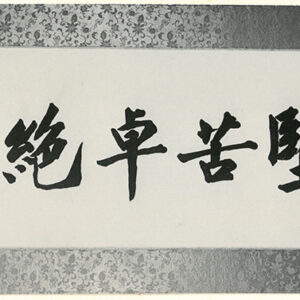 堅苦卓絶